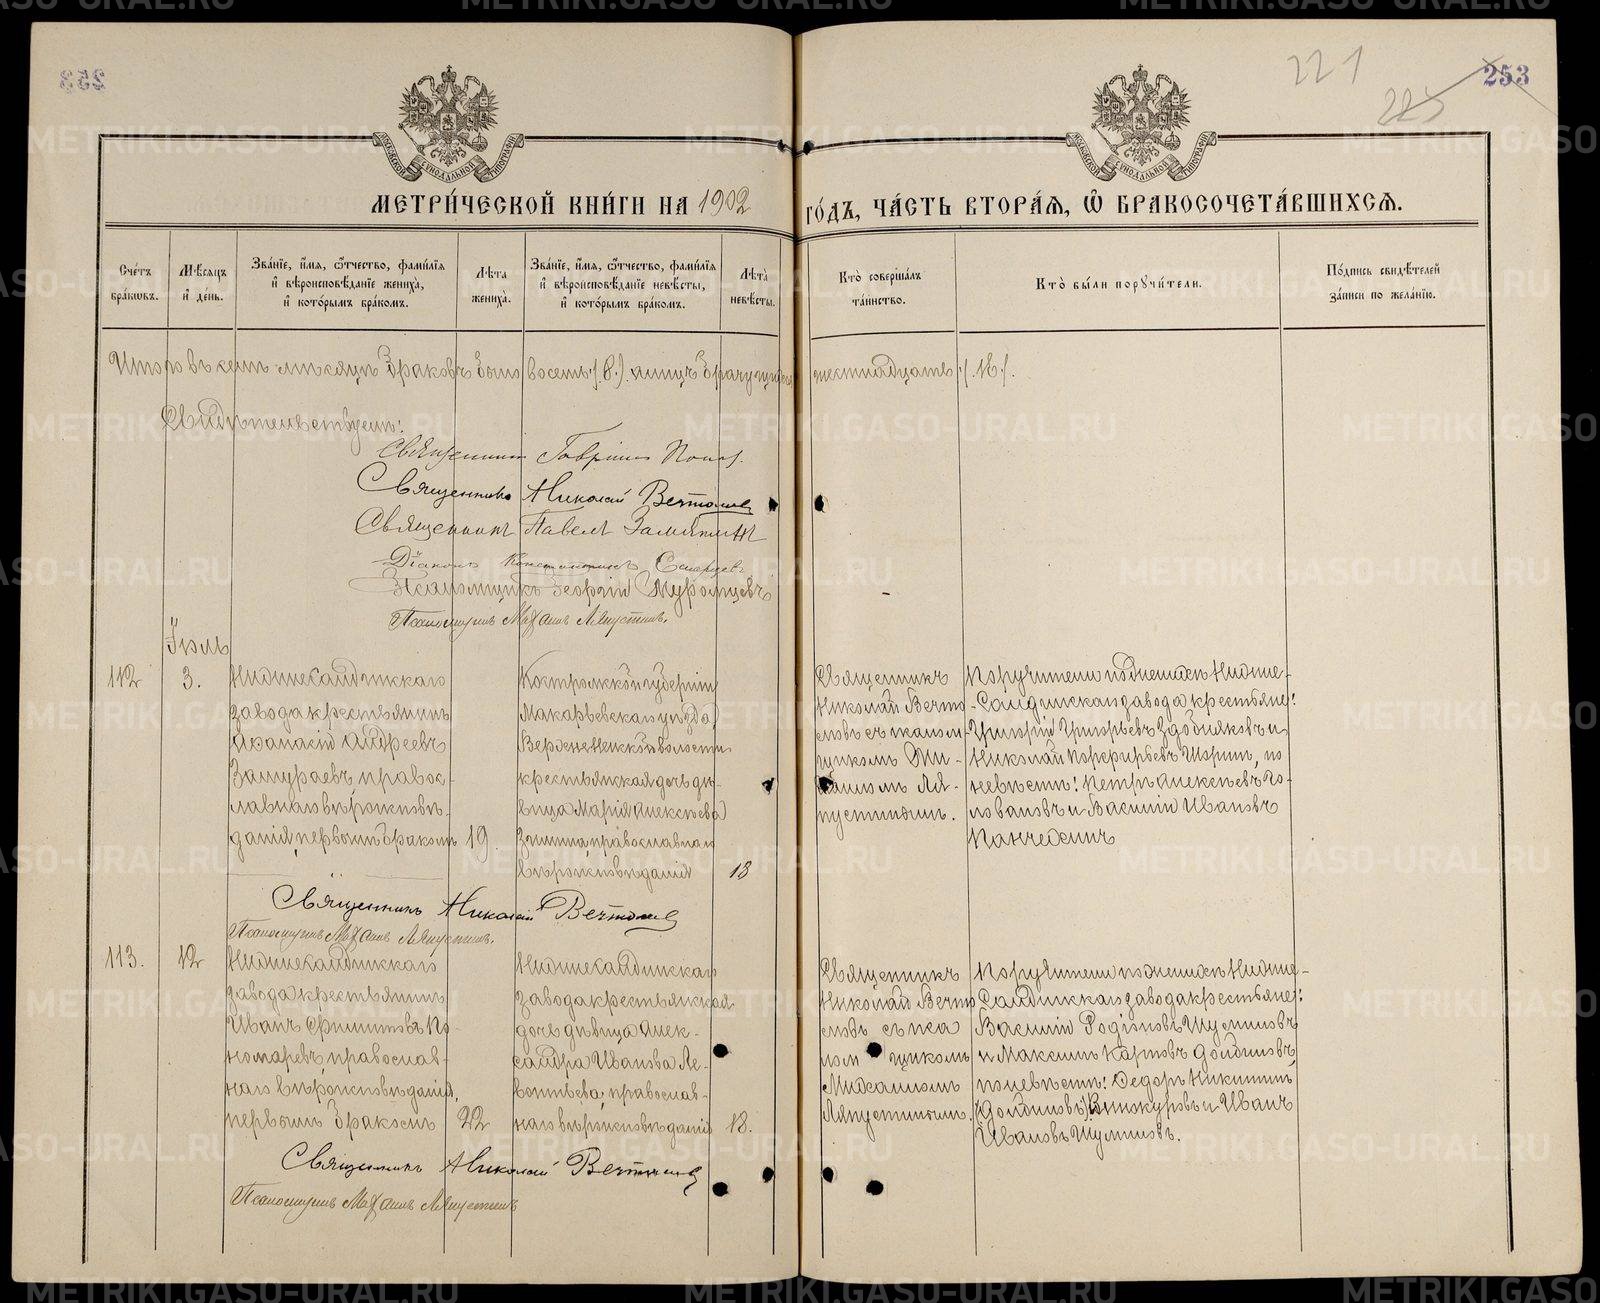 253
221
225
253
МОСКОВСКОЙ СѴНОДАЛЬНОЙ ТИПОГРАФІИ
МОСКОВСКОЙ СѴНОДАЛЬНОЙ ТИПОГРАФІИ
МЕТРИ́ЧЕСКОЙ КНИ́ГИ НА 1902 ГО́ДЪ, ЧА́СТЬ ВТОРА́Ѧ, Ѽ БРАКОСОЧЕТА́ВШИХСѦ.
Сче́тъ бра́ковъ.
Мѣ́сяцъ и́ де́нь.
Зва́нїе, и́мя, ѻ҆́тчество, фами́лїя и҆ вѣроисповѣ́данїе жениха̀, и҆ кото́рымъ бра́комъ.
Лѣ́та жениха̀.
Зва́нїе, и́мя, ѻ҆́тчество, фами́лїя и҆ вѣроисповѣ́данїе невѣ́сты, и҆ кото́рымъ бра́комъ.
Лѣ́та невѣ́сты.
Кто̀ соверша́лъ та́инство.
Кто̀ бы́ли порꙋчи́тели.
По́дпись свидѣ́телей за́писи по жела́нїю.
Итого въ семъ мѣсяцѣ браковъ было восемь (8). лицъ брачущихся шестнадцать (16).
Свидѣтельствуемъ:
Священникъ Гавріилъ Попов
Священникъ Николай
Священникъ Павелъ Замятинъ
Діаконъ Константинъ
Псаломщикъ Георгій Муромцевъ
Псаломщикъ Михаилъ Ляпустинъ.
Іюль
112
3.
Нижнесалдинскаго
завода крестьянинъ
Аѳанасій Андреевъ
Замураевъ, правос-
лавнаго вѣроисповѣ-
данія, первымъ бракомъ
19.
Костромской губерніи
Макарьевскаго уѣзда
волости
крестьянская дочь дѣ-
вица Марія Алексѣева
Зимина, православнаго
вѣроисповѣданія
18
Священникъ
Николай
съ псалом-
щикомъ Ми-
хаиломъ Ля-
пустинымъ.
Поручители по женихѣ: Нижне-
Салдинскаго завода крестьяне:
Григорій Григорьевъ Здобняковъ и
Николай Порфирьевъ Шоринъ, по
невѣстѣ: Петръ Алексѣевъ Го-
ловановъ и Василій Ивановъ
Священникъ Николай
Псаломщикъ Михаилъ Ляпустинъ.
113.
12
Нижнесалдинскаго
завода крестьянинъ
Иванъ Филипповъ По-
номаревъ, православ-
наго вѣроисповѣданія,
первымъ бракомъ
22
Нижнесалдинскаго
завода крестьянская
дочь дѣвица Алек-
сандра Иванова Ле-
онтьева, православ-
наго вѣроисповѣданія
18.
Священникъ
Николай
съ пса
лом щикомъ
Михаиломъ
Ляпустинымъ.
Поручители по женихѣ: Нижне-
Салдинскаго завода крестьяне:
Василій Родіоновъ Шумиловъ
и Максимъ Карповъ Долбиловъ,
по невѣстѣ: Ѳедоръ Никитинъ
(Долбиловъ) Винокуровъ и Иванъ
Ивановъ Шумиловъ.
Священникъ Николай
Псаломщикъ Михаилъ Ляпустинъ
METRIKI.GASO-URAL.RU